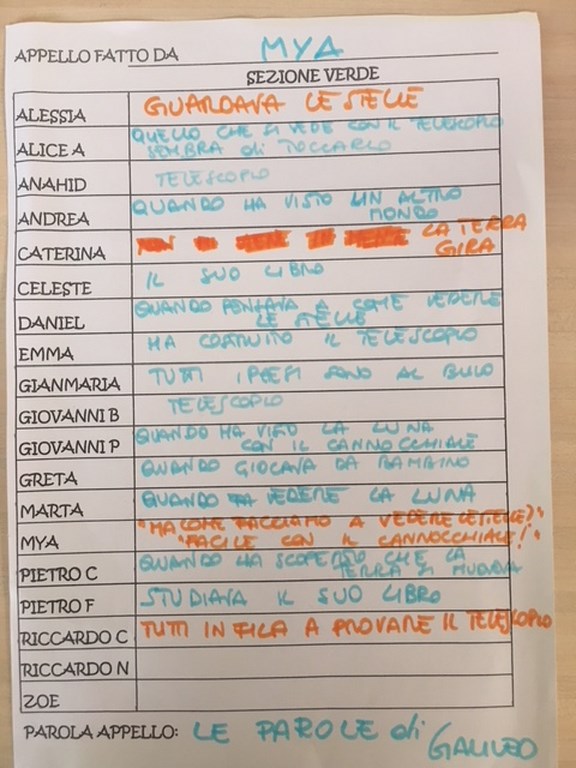 APPELLO FATTO DA MYA
SEZIONE VERDE
ALESSIA GUARDAVA LE STELLE
ALICE A QUELLO CHE SI VEDE CON IL TELESCOPIO
SEMBRA di TOCCARLO
ANAHID TELESCOPIO
ANDREA QUANDO HA VISTO UN ALTRO
MONDO
CATERINA LA TERRA
GIRA
CELESTE IL SUO LIBRO
DANIEL QUANDO PENSAVA A COME VEDERE
LE STELLE
EMMA HA COSTRUITO IL TELESCOPIO
GIANMARIA TUTTI I PAESI SONO AL BUIO
GIOVANNI B TELESCOPIO
GIOVANNI P QUANDO HA VISTO LA LUNA
CON IL CANNOCCHIALE
GRETA QUANDO GIOCAVA DA BAMBINO
MARTA QUANDO VEDERE LA LUNA
MYA "MA COME FACCIAMO A VEDERE LE STELLE?"
"FACILE CON IL CANNOCCHIALE!"
PIETRO C QUANDO HA SCOPERTO CHE LA
TERRA SI MUOVEVA
PIETRO F STUDIAVA IL SUO LIBRO
RICCARDO C TUTTI IN FILA A PROVARE IL TELESCOPIO
RICCARDO N
ZOE
PAROLA APPELLO: LE PAROLE di
GALILEO